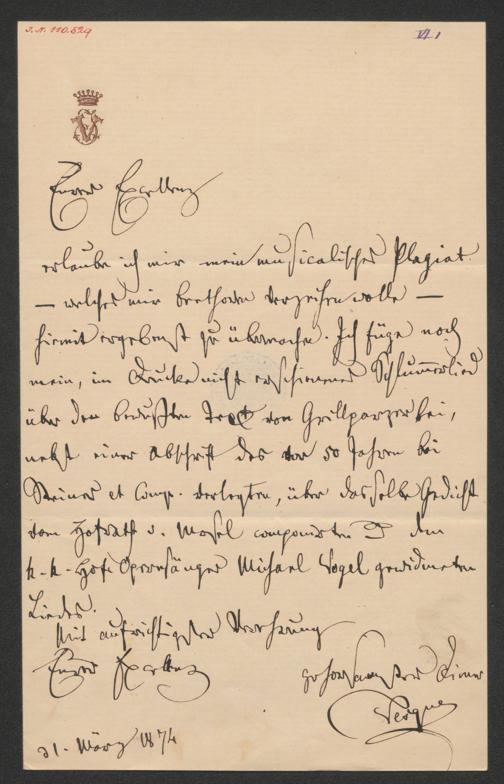 J.N. 110.529
VI 1
Eurer Excellenz
erlaube ich mir mein musicalisches Plagiat
— welches mir Beethoven verzeihen wolle —
hiemit ergebenst zu übermachen. Ich füge noch
mein, im Drucke nicht erschienenes Schlummerlied
über den bewußten Text von Grillparzer bei,
nebst einer Abschrift des vor 50 Jahren bei
Steiner et Comp. verlegten, über dasselbe Gedicht
vom Hofrath v. Mosel componirten & dem
k.k. Hof Opernsänger Michael Vogel gewidmeten
Liedes.
Mit aufrichtigster Verehrung
Eurer Excellenz
gehorsamster Diener
Vesque
31. März 1874